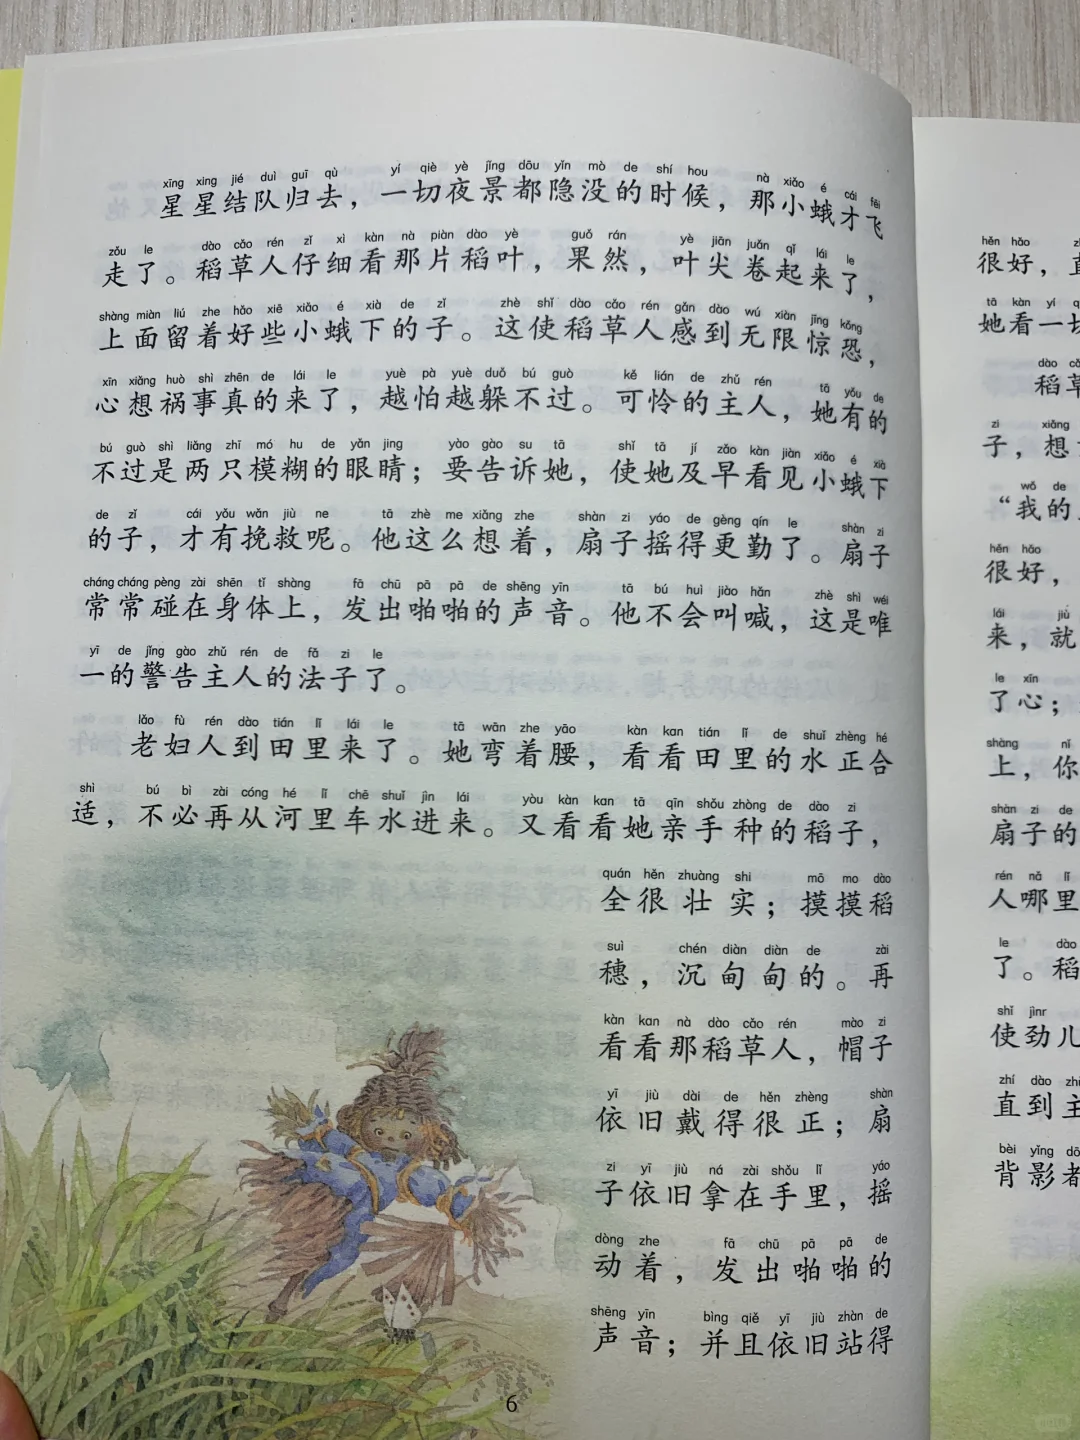 xīng xing jié duì guī qù yí qiè yè jǐng dōu yǐn mò de shí hou nà xiǎo é cái fēi
星星结队归去，一切夜景都隐没的时候，那小蛾才飞
zǒu le dào cǎo rén zǐ xì kàn nà piàn dào yè guǒ rán yè jiān juǎn qǐ lái le
走了。稻草人仔细看那片稻叶，果然，叶尖卷起来了，
shàng miàn liú zhe hǎo xiē xiǎo é xià de zǐ zhè shǐ dào cǎo rén gǎn dào wú xiàn jīng kǒng
上面留着好些小蛾下的子。这使稻草人感到无限惊恐，
xīn xiǎng huò shì zhēn de lái le yuè pà yuè duǒ bú guò kě lián de zhǔ rén tā yǒu de
心想祸事真的来了，越怕越躲不过。可怜的主人，她有的
bú guò shì liǎng zhī mó hu de yǎn jing yào gào su tā shǐ tā jí zǎo kàn jiàn xiǎo é xià
不过是两只模糊的眼睛；要告诉她，使她及早看见小蛾下
de zǐ cái yǒu wǎn jiù ne tā zhè me xiǎng zhe shàn zi yáo de gèng qín le shàn zi
的子，才有挽救呢。他这么想着，扇子摇得更勤了。扇子
cháng cháng pèng zài shēn tǐ shàng fā chū pā pā de shēng yīn tā bú huì jiào hǎn zhè shì wéi
常常碰在身体上，发出啪啪的声音。他不会叫喊，这是唯
yī de jǐng gào zhǔ rén de fǎ zi le
一的警告主人的法子了。
lǎo fù rén dào tián lǐ lái le tā wān zhe yāo kàn kan tián lǐ de shuǐ zhèng hé
老妇人到田里来了。她弯着腰，看看田里的水正合
shì bú bì zài cóng hé lǐ chē shuǐ jìn lái yòu kàn kan tā qīn shǒu zhòng de dào zi
适，不必再从河里车水进来。又看看她亲手种的稻子，
quán hěn zhuàng shi mō mo dào
全很壮实；摸摸稻
suì chén diàn diàn de zài
穗，沉甸甸的。再
kàn kan nà dào cǎo rén mào zi
看看那稻草人，帽子
yī jiù dài de hěn zhèng shàn
依旧戴得很正；扇
zi yī jiù ná zài shǒu lǐ yáo
子依旧拿在手里，摇
dòng zhe fā chū pā pā de
动着，发出啪啪的
shēng yīn bìng qiě yī jiù zhàn de
声音；并且依旧站得
6
hěn hǎo
很好，
tā kàn yí
她看一
dào
稻草
zi xiǎng
子，想
wǒ de
“我的
hěn hǎo
很好，
lái jiù
来，就
le xīn
了心；
shàng nǐ
上，你
shàn zi de
扇子的
rén nǎ lǐ
人哪里
le dào
了。稻
shǐ jìnr
使劲儿
zhí dào
直到主
bèi yǐng
背影